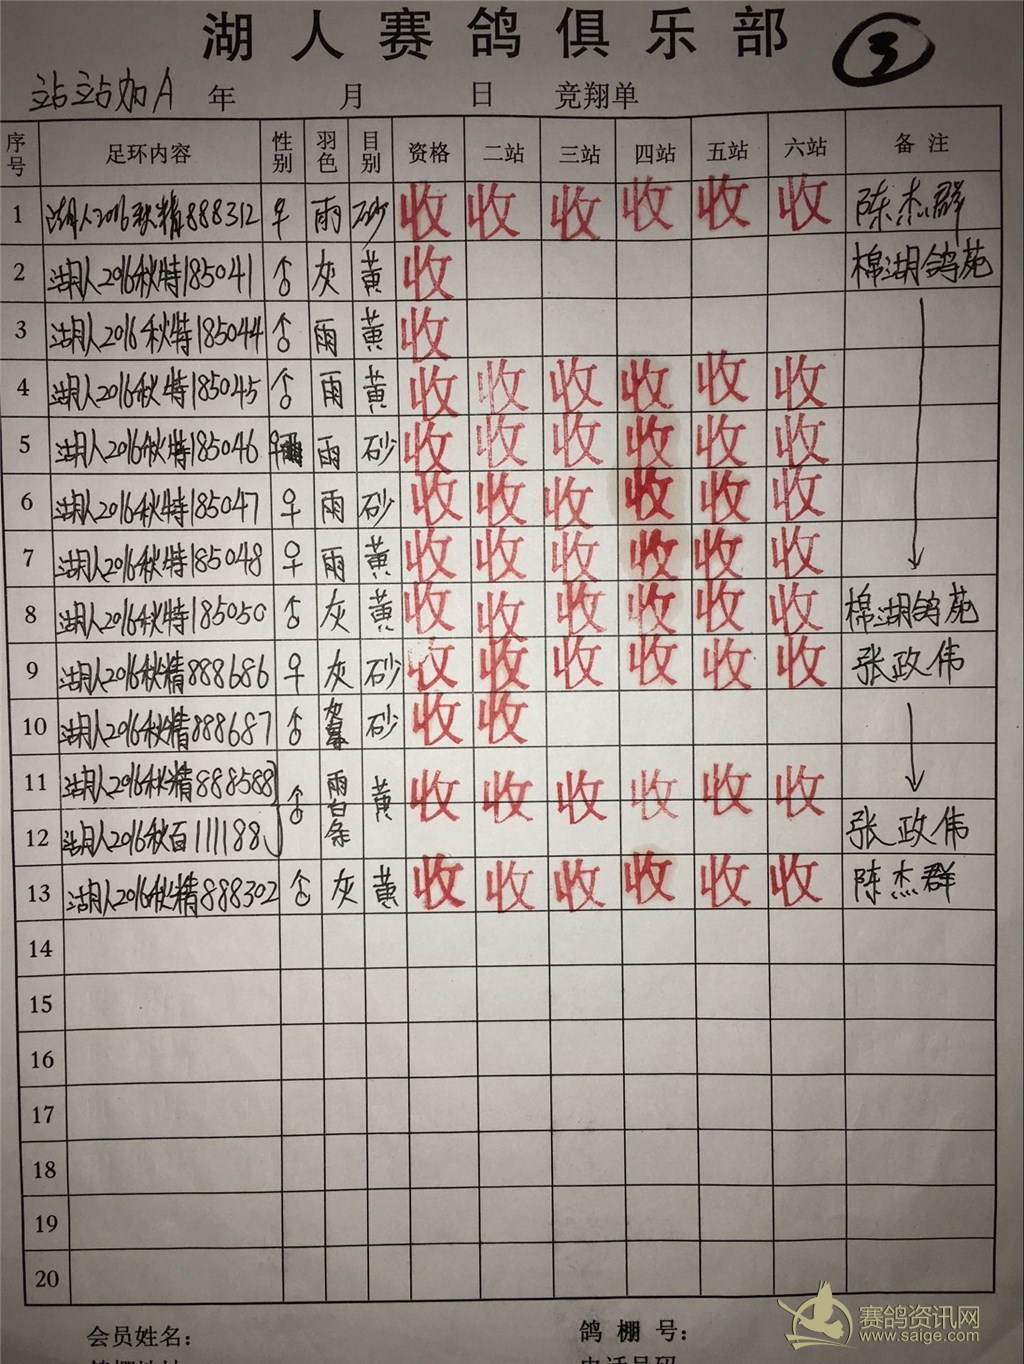 湖人赛鸽俱乐部 ③
站站加A 年 月 日 竞翔单
序号 足环内容 性别 羽色 目别 资格 二站 三站 四站 五站 六站 备注
1 湖人2016秋精888312 ♀ 雨 砂 收 收 收 收 收 收 陈杰群
2 湖人2016秋特185041 ♂ 灰 黄 收 棉湖鸽苑
3 湖人2016秋特185044 ♂ 雨 黄 收
4 湖人2016秋特185045 ♂ 雨 黄 收 收 收 收 收 收
5 湖人2016秋特185046 ♀ 雨 砂 收 收 收 收 收 收
6 湖人2016秋特185047 ♀ 雨 砂 收 收 收 收 收 收
7 湖人2016秋特185048 ♀ 雨 黄 收 收 收 收 收 收
8 湖人2016秋特185050 ♂ 灰 黄 收 收 收 收 收 收 棉湖鸽苑
9 湖人2016秋精888686 ♀ 灰 砂 收 收 收 收 收 收 张政伟
10 湖人2016秋精888687 ♂ 砂 收 收
11 湖人2016秋精888588 ♂ 雨白条 黄 收 收 收 收 收 收
12 湖人2016秋百111188 张政伟
13 湖人2016秋精888302 ♂ 灰 黄 收 收 收 收 收 收 陈杰群
14
15
16
17
18
19
20
会员姓名: 鸽棚号:
赛鸽资讯网
www.saige.com